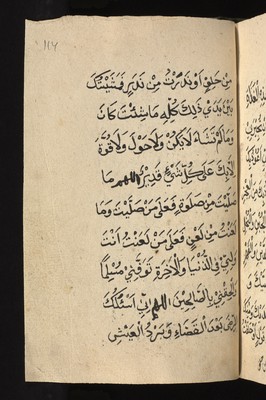 ١١٧
مِنْ حَلِفٍ اَوْ نَذَرْتُ مِنْ نَذْرٍ فَمَشِيَّتُكَ
بَيْنَ يَدَيْ ذَلِكَ كُلِّهِ مَا شِئْتَ كَانَ
وَمَا لَمْ تَشَاءْ لَا يَكُنْ وَلَا حَوْلَ وَلَا قُوَّةَ
اِلَّا بِكَ عَلَى كُلِّ شَىْءٍ قَدِيْرٌ اللهم مَا
صَلَّيْتَ مِنْ صَلَوةٍ فَعَلَى مَنْ صَلَّيْتَ وَمَا
لَعَنْتَ مِنْ لَعْنٍ فَعَلَى مَنْ لَعَنْتَ اَنْتَ
وَلِيِّى فِى الدُّنْيَا وَالْاٰخِرَةِ تَوَفَّنِى مُسْلِمًا
وَاَلْحِقْنِى بِالصَّالِحِيْنَ اللهم اِنِّى اَسْئَلُكَ
بَعْدَ الْقَضَاءِ وَبَرْدَ الْعَيْشِ